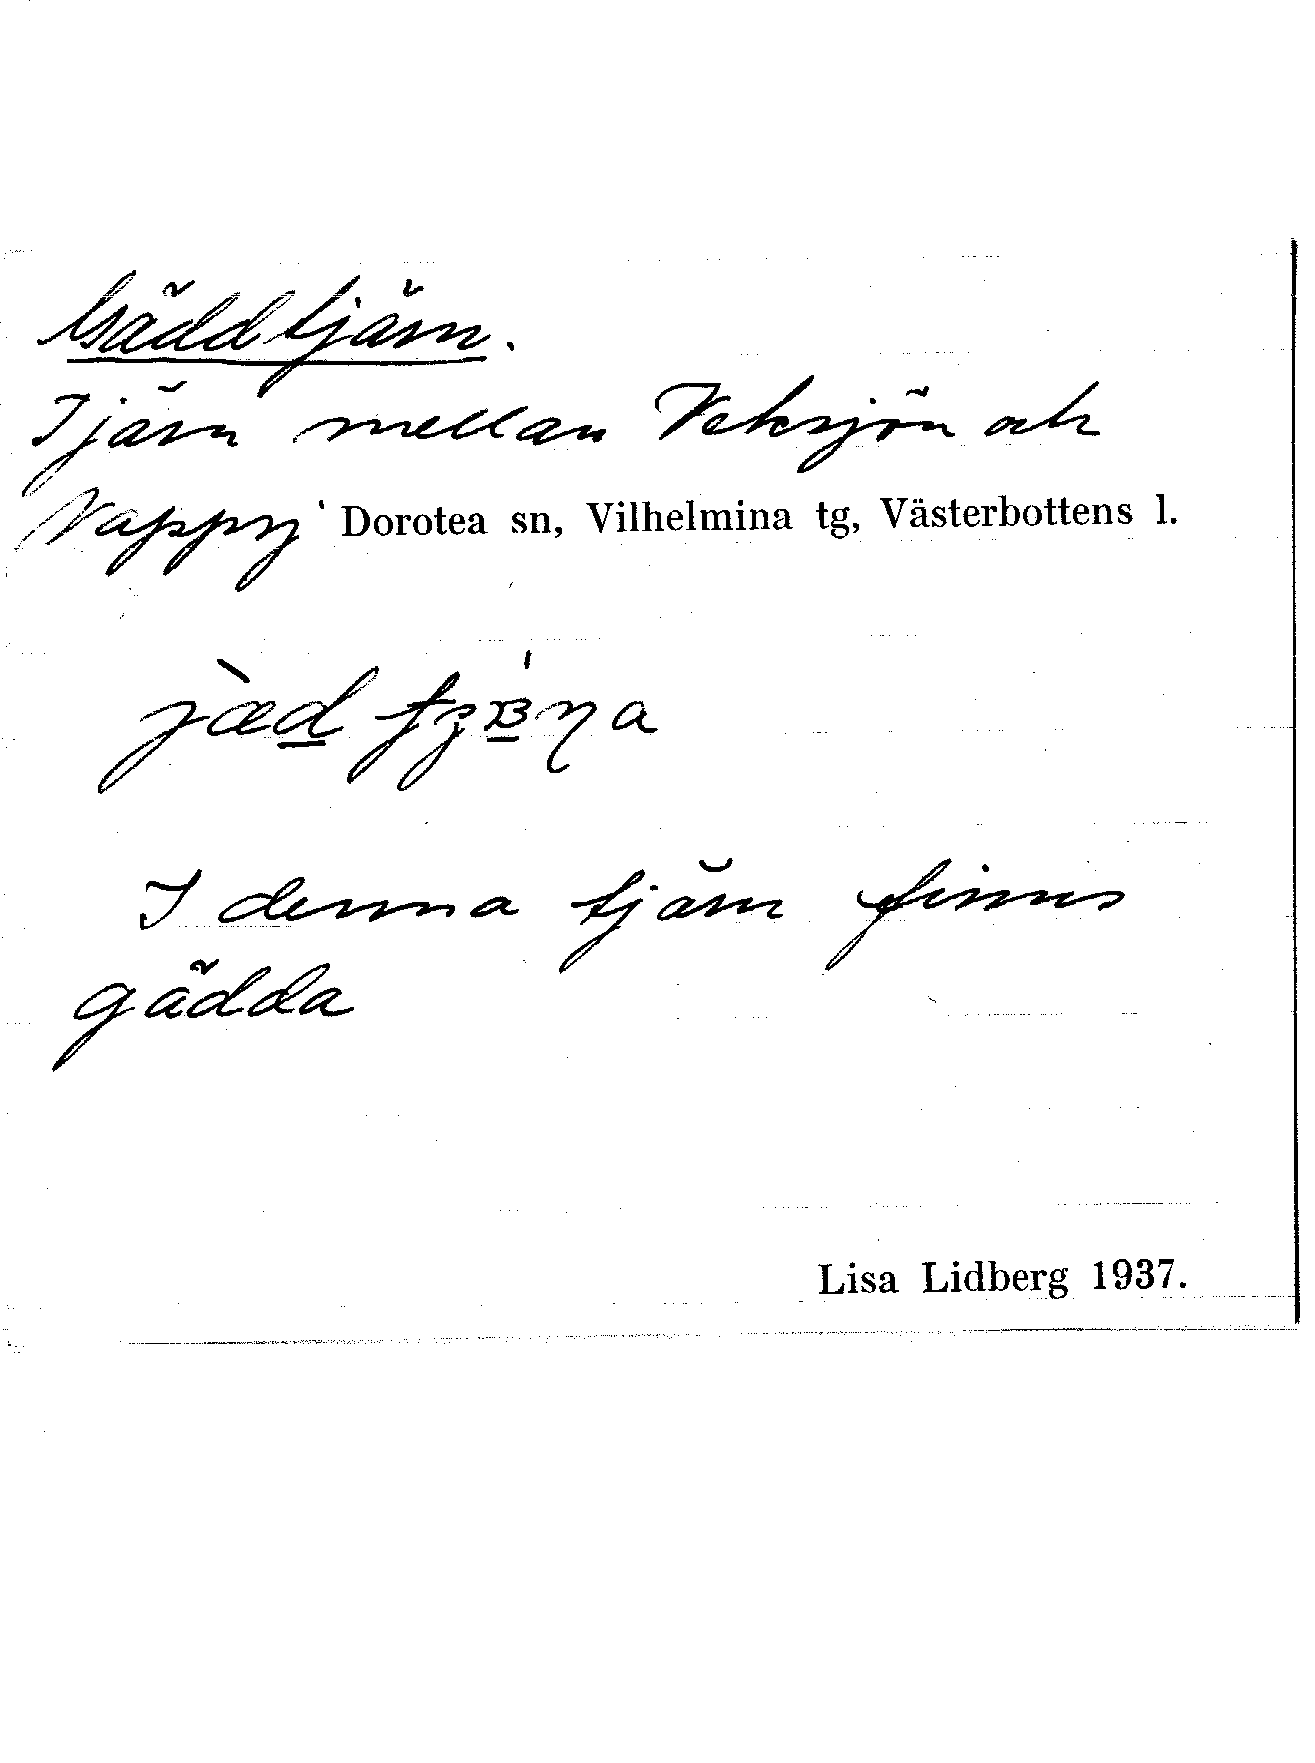 Gäddtjärn.
Tjärn mellan Veksjön och
Nappy Dorotea sn, Vilhelmina tg, Västerbottens l.
I denna tjärn finns
gädda
Lisa Lidberg 1937.